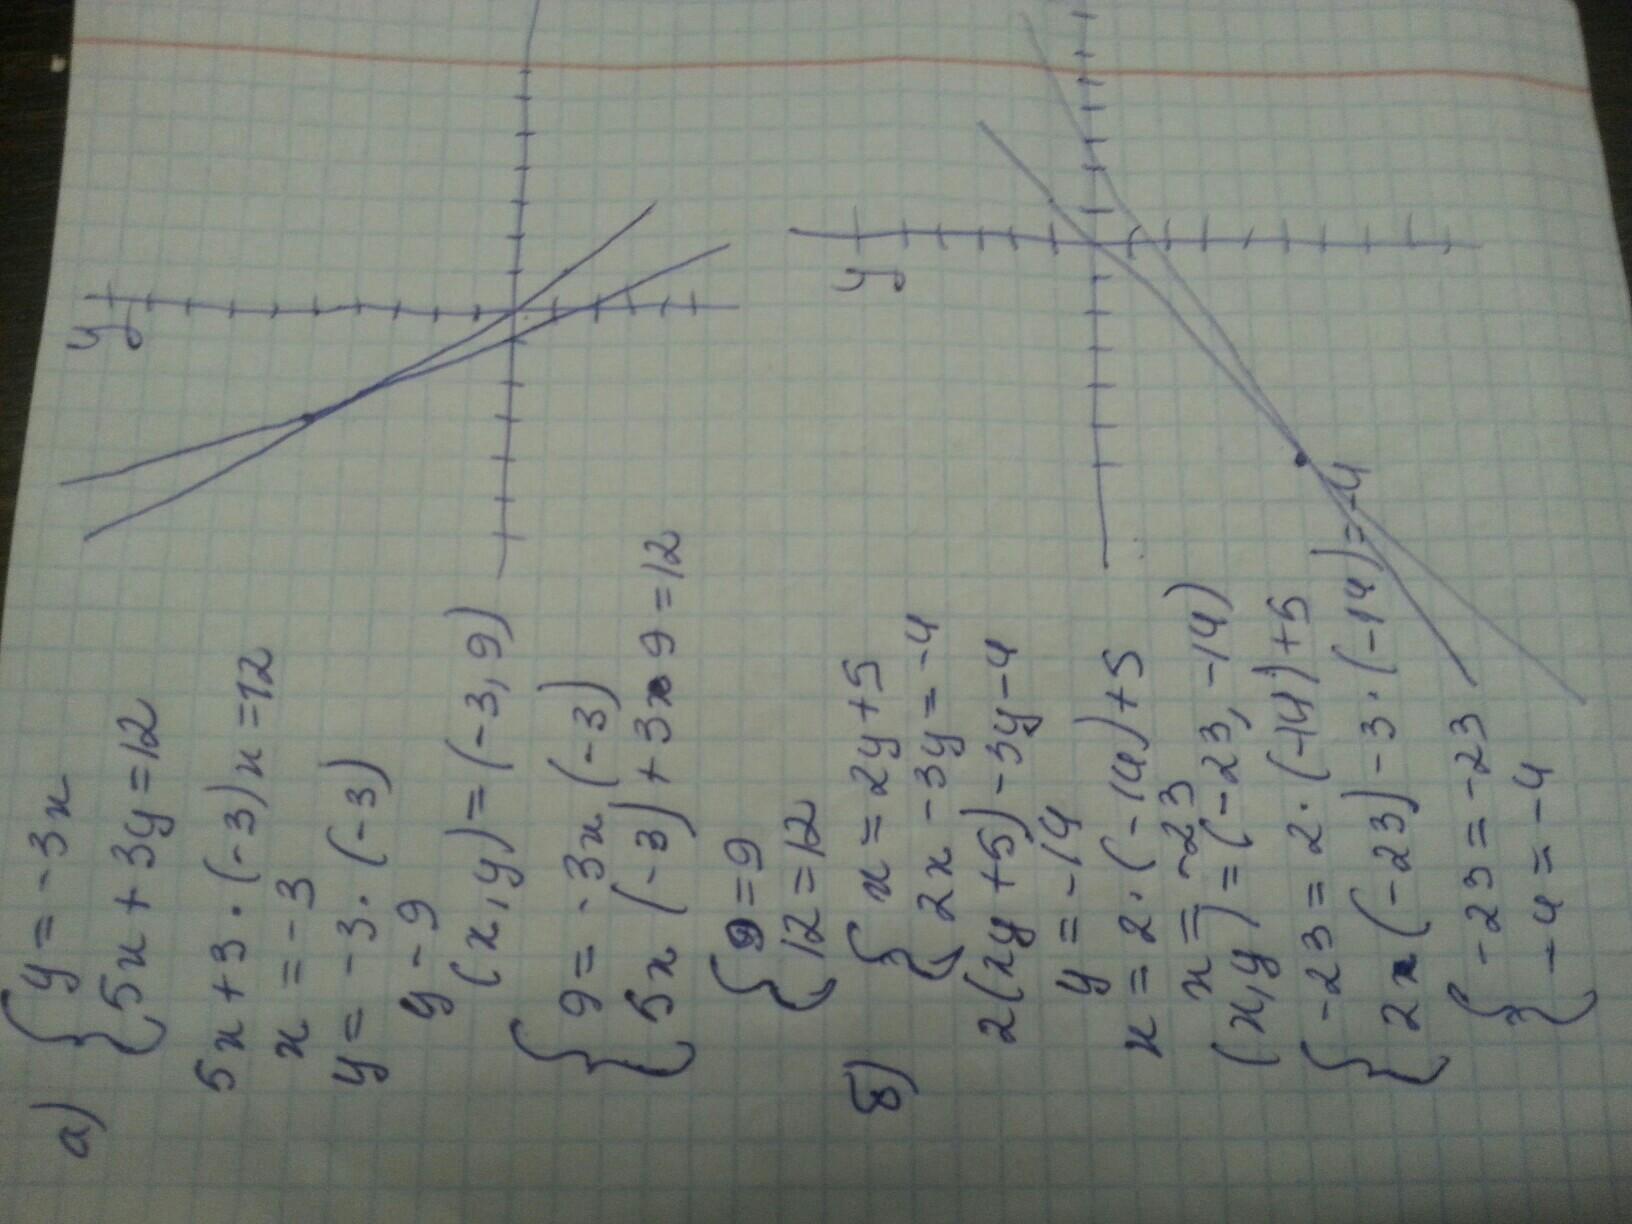 а) { y = -3x
5x + 3y = 12
5x + 3 · (-3)x = 12
x = -3
y = -3 · (-3)
y - 9
(x, y) = (-3, 9)
{ 9 = -3x (-3)
5x (-3) + 3x 9 = 12
{ 9 = 9
12 = 12
y
б) { x = 2y + 5
2x - 3y = -4
2(xy + 5) - 3y - 4
y = -14
x = 2 · (-14) + 5
x = -23
(x, y) = (-23, -14)
{ -23 = 2 · (-14) + 5
2x (-23) - 3 · (-14) = -4
{ -23 = -23
-4 = -4
y